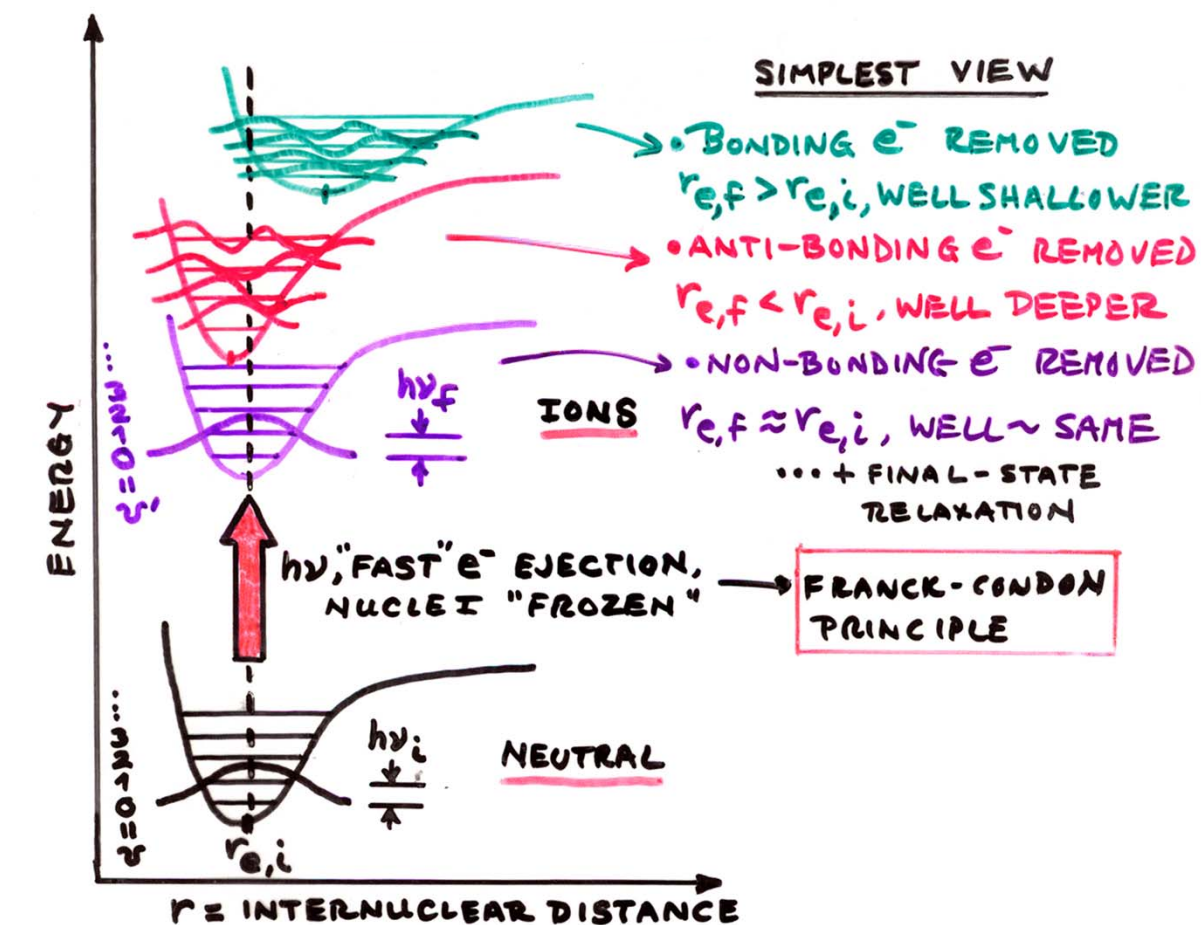 SIMPLEST VIEW
• BONDING e⁻ REMOVED
r e,f > r e,i, WELL SHALLOWER
• ANTI-BONDING e⁻ REMOVED
r e,f < r e,i, WELL DEEPER
• NON-BONDING e⁻ REMOVED
r e,f ≈ r e,i, WELL ~ SAME
... + FINAL-STATE
RELAXATION
hνf
IONS
v' = 0 1 2 3 ...
ENERGY
hν, "FAST" e⁻ EJECTION,
NUCLEI "FROZEN"
FRANCK-CONDON
PRINCIPLE
hνi
NEUTRAL
v = 0 1 2 3 ...
r e,i
r = INTERNUCLEAR DISTANCE